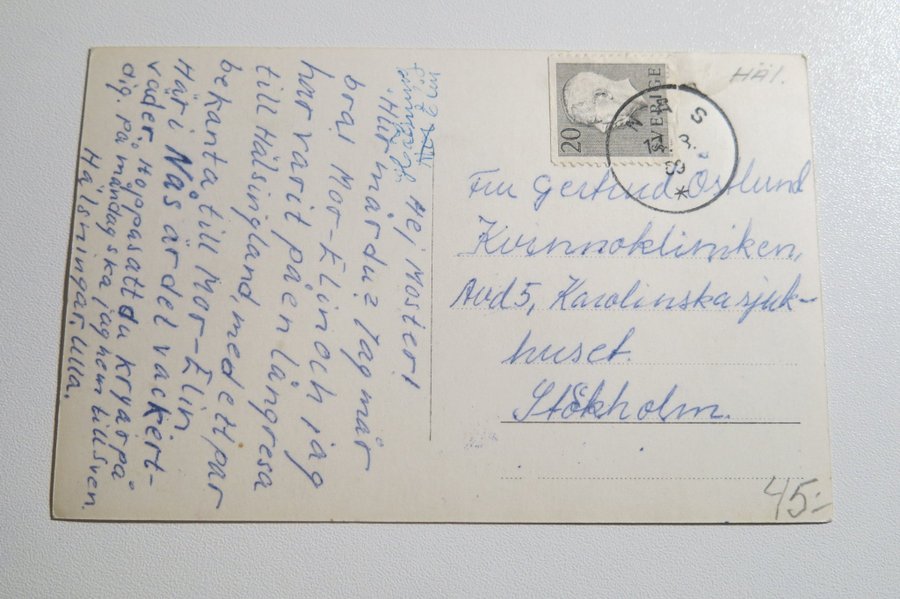 Hej Moster!
Hur mår du? Jag mår
bra! Mor-Elin och jag
har varit på en lång resa
till Hälsingland, med ett par
bekanta till Mor-Elin.
Här i Nås är det vackert-
väder. Hoppas att du kryar på
dig. På måndag ska jag hem till Sven.
Hälsningar, Ulla.
Hälsning
Mor Elin
HÄL.
20
SVERIGE
NÅS
Fru Gertrud Östlund
Kvinnokliniken,
Avd 5, Karolinska sjuk-
huset.
Stockholm.
45:-